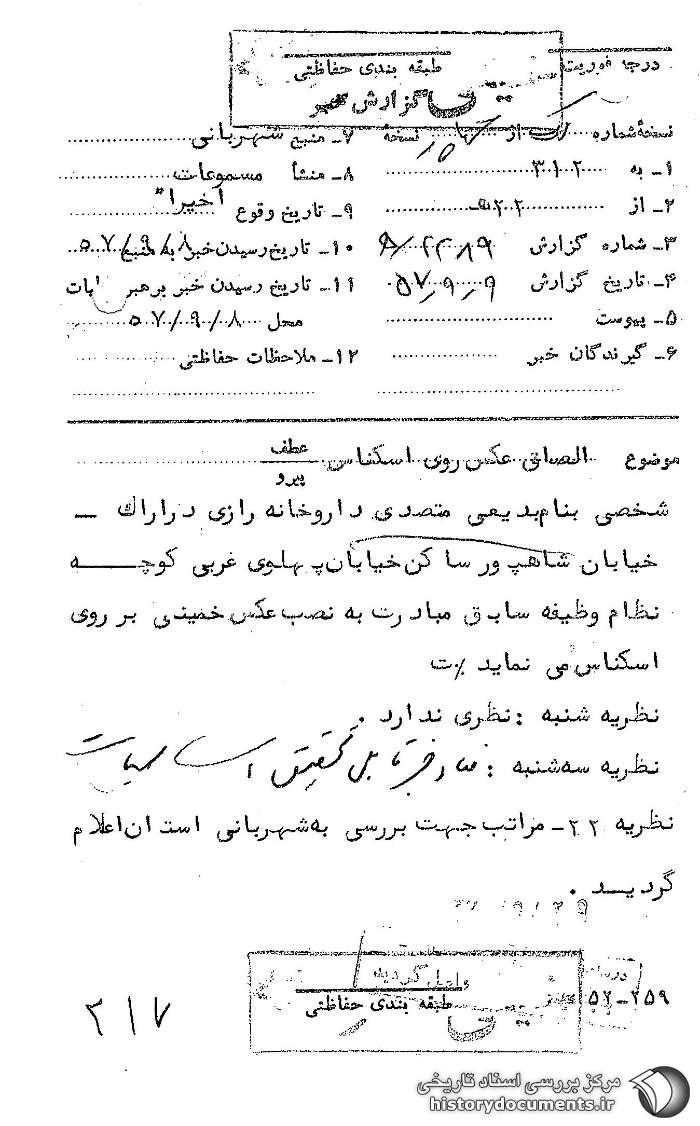 درجه فوریت
طبقه بندی حفاظتی
گزارش خبر
نسخهٔ شماره از نسخه
۱ـ به ۳۰۱۰۲
۲ـ از
۳ـ شماره گزارش
۴ـ تاریخ گزارش ۵۷٫۹٫۹
۵ـ پیوست
۶ـ گیرندگان خبر
۷ـ منبع شهربانی
۸ـ منشأ مسموعات
۹ـ تاریخ وقوع اخیرا"
۱۰ـ تاریخ رسیدن خبر به منبع ۵۷/۹/۸
۱۱ـ تاریخ رسیدن خبر برهبر
محل ۵۷/۹/۸
۱۲ـ ملاحظات حفاظتی
موضوع الصاق عکس روی اسکناس عطف
پیرو
شخصی بنام بدیعی متصدی داروخانه رازی در اراک ـ
خیابان شاهپور ساکن خیابان پهلوی غربی کوچه
نظام وظیفه سابق مبادرت به نصب عکس خمینی بر روی
اسکناس می نماید ٪ت
نظریه شنبه : نظری ندارد .
نظریه سه‌شنبه :
نظریه ۲۲ـ مراتب جهت بررسی به شهربانی استان اعلام
گردید .
واصل گردید
طبقه بندی حفاظتی
۵۲-۲۵۹
۲۱۷
مرکز بررسی اسناد تاریخی
historydocuments.ir